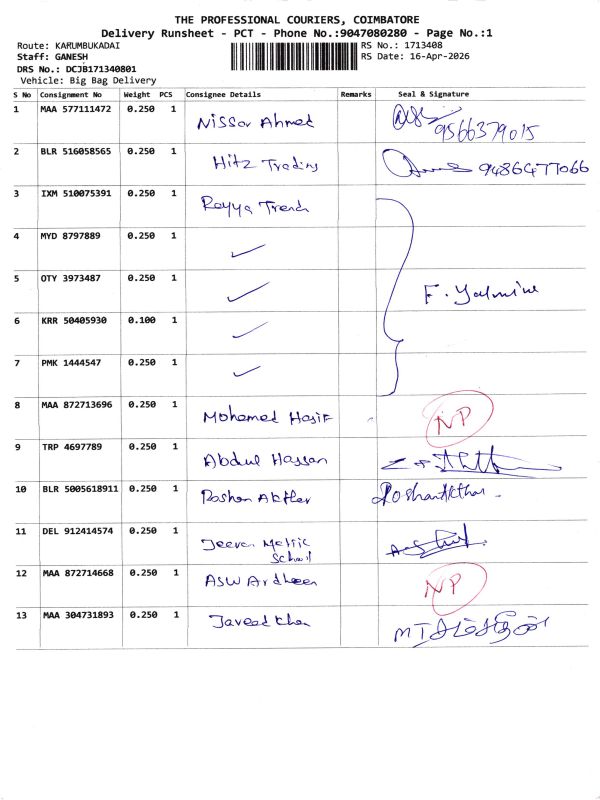 THE PROFESSIONAL COURIERS, COIMBATORE
Delivery Runsheet - PCT - Phone No.:9047080280 - Page No.:1
Route: KARUMBUKADAI RS No.: 1713408
Staff: GANESH RS Date: 16-Apr-2026
DRS No.: DCJB171340801
Vehicle: Big Bag Delivery
S No Consignment No Weight PCS Consignee Details Remarks Seal & Signature
1 MAA 577111472 0.250 1 Nissar Ahmed 9566379015
2 BLR 516058565 0.250 1 Hitz Trading 9486477066
3 IXM 510075391 0.250 1 Rayya Trend
4 MYD 8797889 0.250 1 ✓
5 OTY 3973487 0.250 1 ✓ F. Yalmine
6 KRR 50405930 0.100 1 ✓
7 PMK 1444547 0.250 1 ✓
8 MAA 872713696 0.250 1 Mohamed Hasif NP
9 TRP 4697789 0.250 1 Abdul Hassan
10 BLR 5005618911 0.250 1 Roshan Akther Roshanakthar
11 DEL 912414574 0.250 1 Jeevan Matric
School
12 MAA 872714668 0.250 1 NP
13 MAA 304731893 0.250 1 Javeed Khan